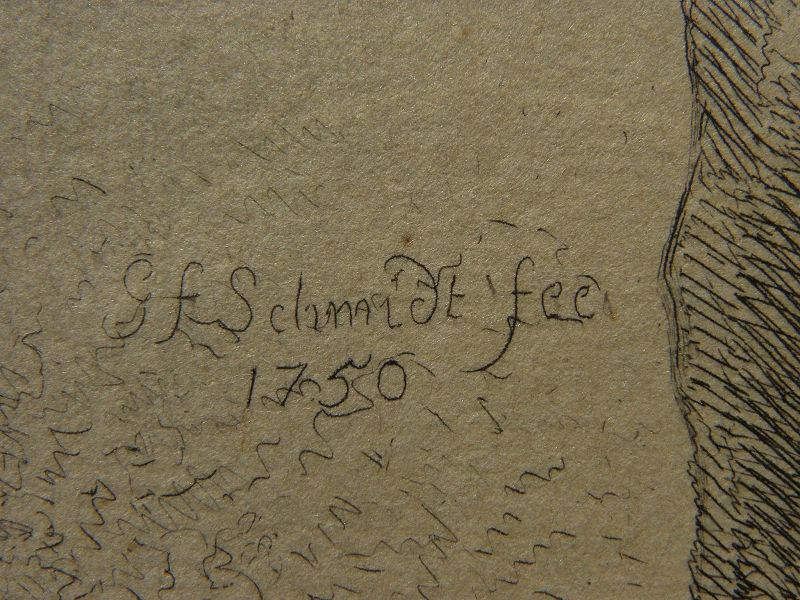 G f Schmidt fec
1750